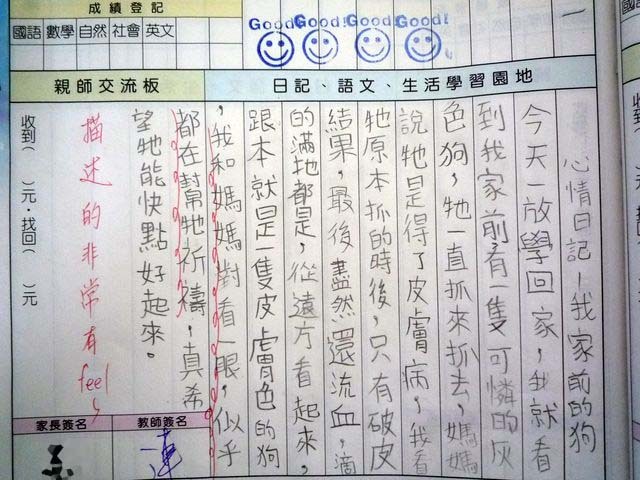 成績登記
國語 數學 自然 社會 英文
Good! Good! Good! Good!
一
親師交流板
日記、語文、生活學習園地
心情日記—我家前的狗
今天一放學回家，我就看
到我家前有一隻可憐的灰
色狗，牠一直抓來抓去，媽媽
說牠是得了皮膚病，我看
牠原本抓的時後，只有破皮
結果，最後盡然還流血，滴
的滿地都是，從遠方看起來，
跟本就是一隻皮膚色的狗
，我和媽媽對看一眼，似乎
都在幫牠祈禱，真希
望牠能快點好起來。
描述的非常有feel
收到（ ）元．找回（ ）元
家長簽名
教師簽名